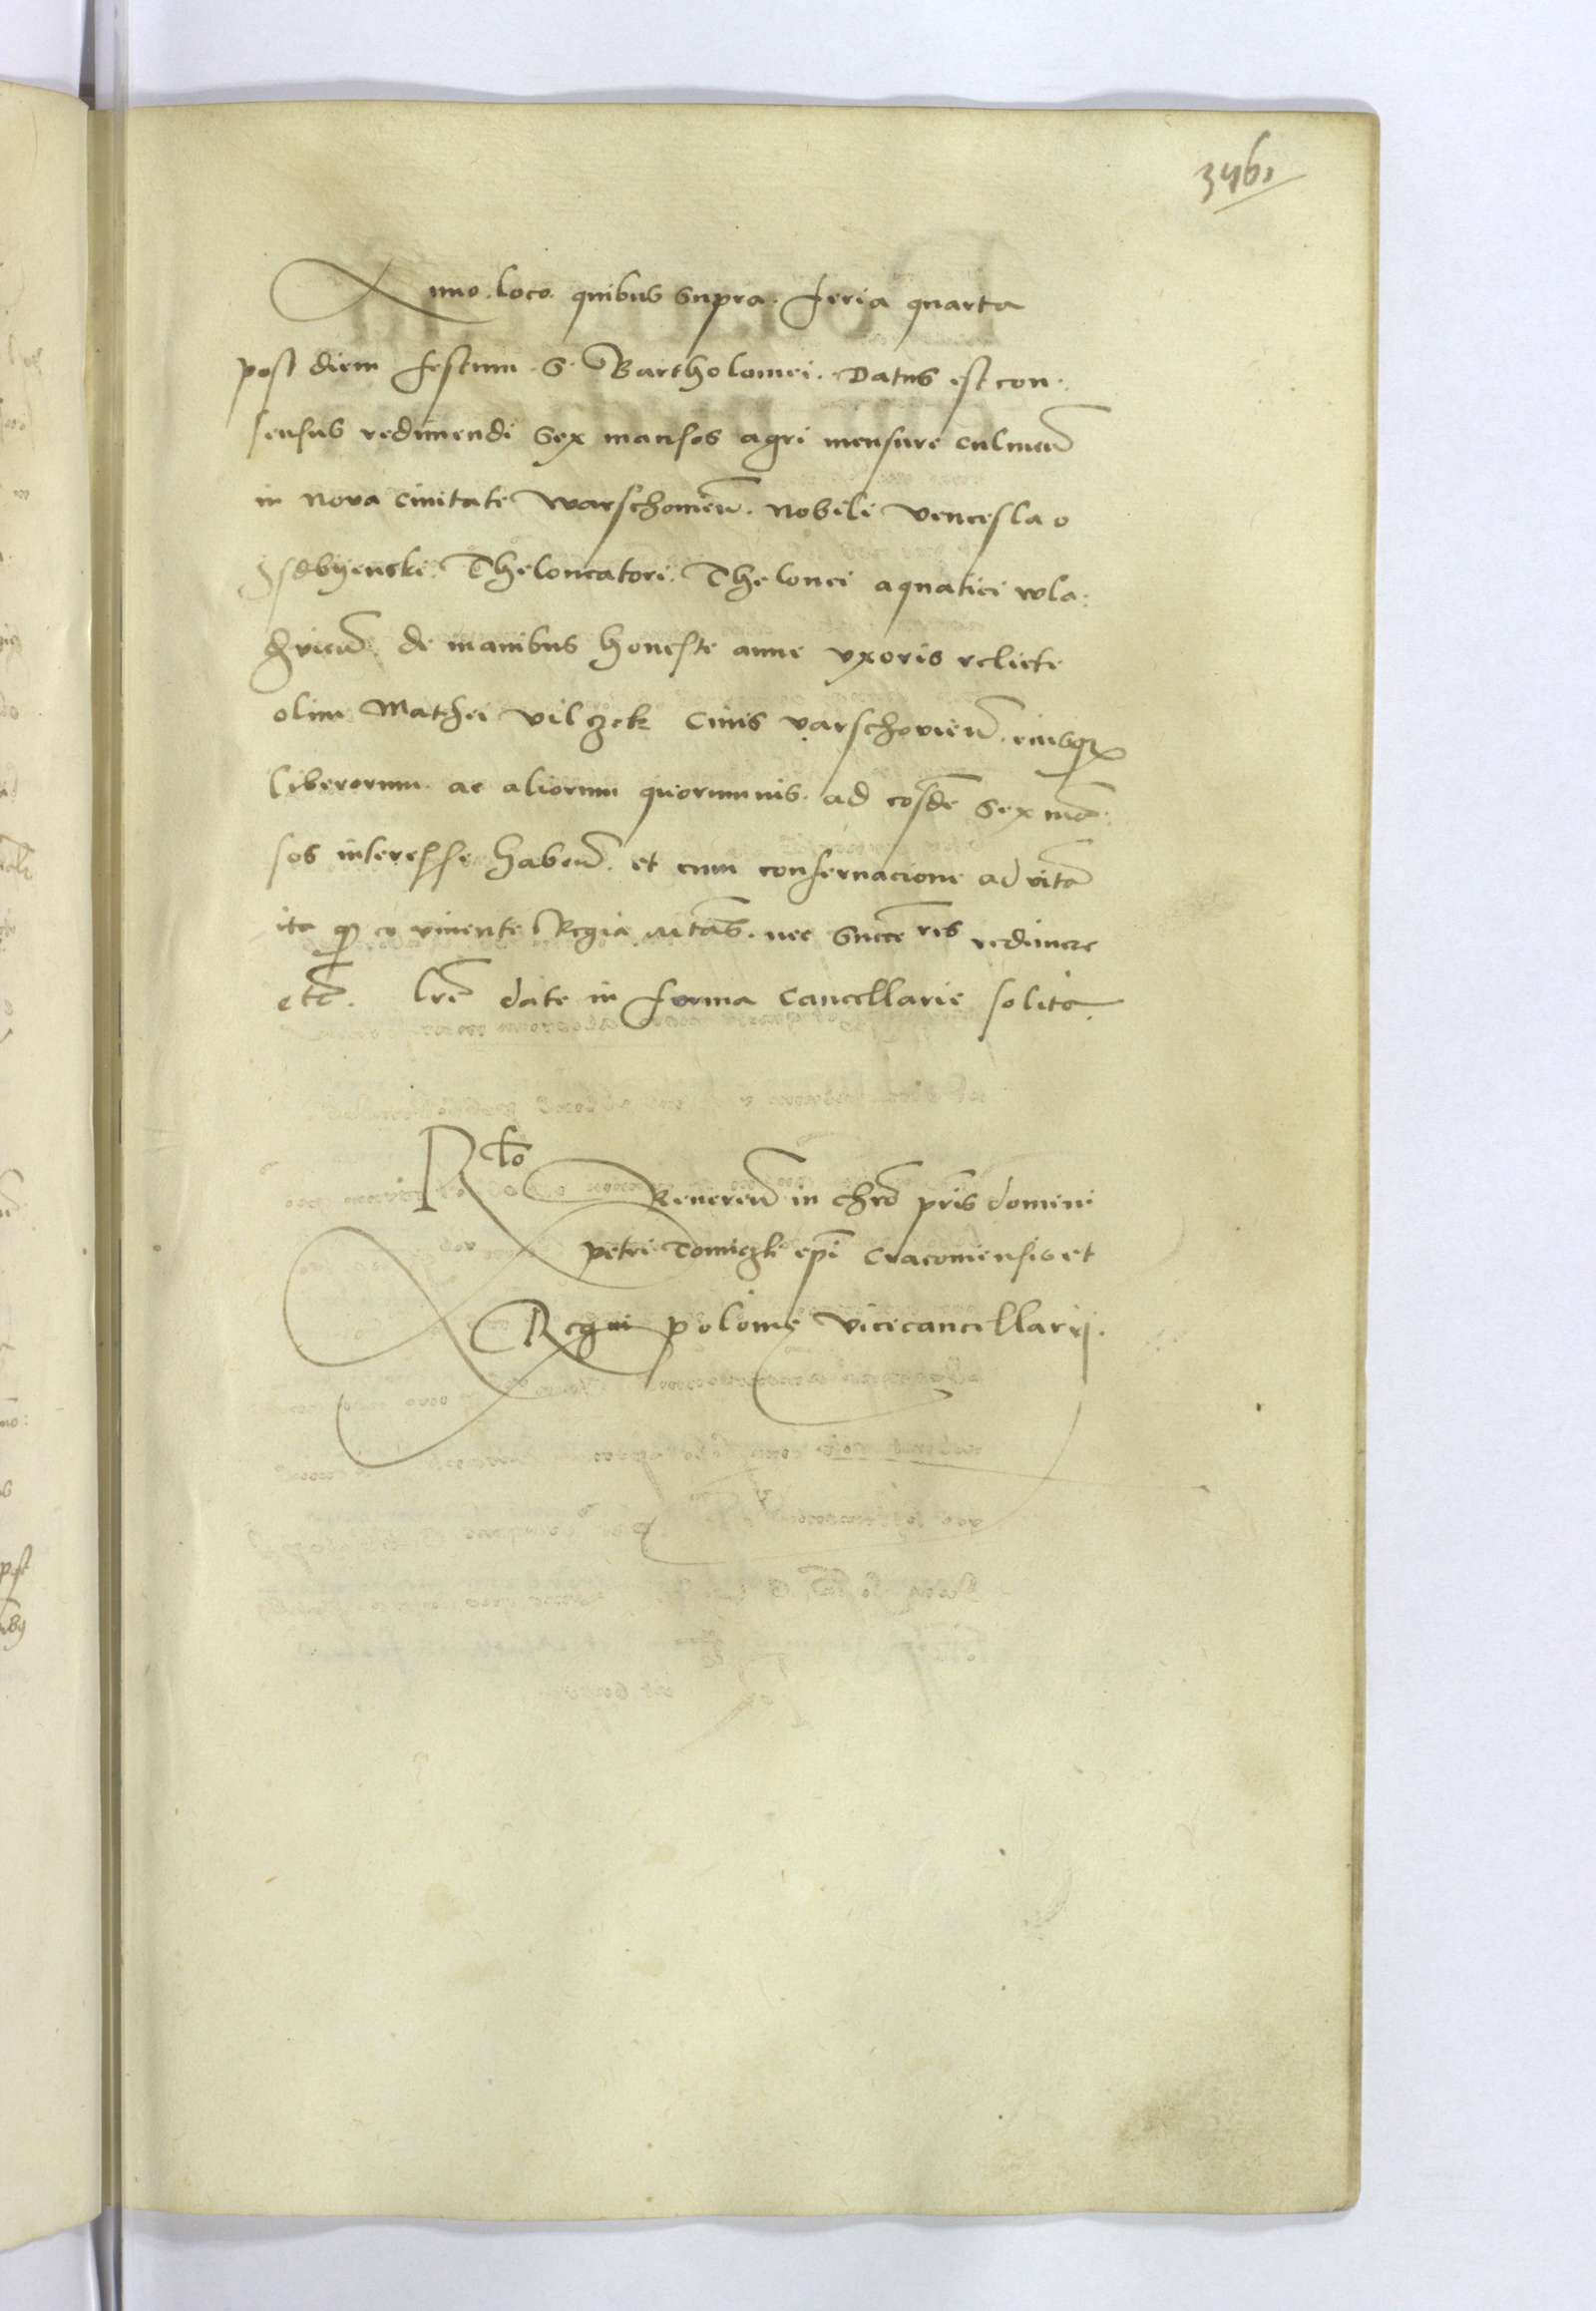 Anno. loco. quibus supra. feria quarta
post diem festum. S. Bartholomei. Datus est con.
sensus redimendi sex mansos agri mensure culmeñ
in Nova Civitate Warschovieñ. Nobili Venceslao
Theloneatori. Thelonei aquatici wla:
de manibus honeste anne uxoris relicte
olim Mathei vilczek Civis varschovieñ. eiusqz
liberorum. ac aliorum quorumvis. ad eosdē sex mā.
sos interesse habeñ. et cum conservacione ad vitā
ita qȝ eo vivente Regia Mtās. nec succeres redimere
etc̄. Lrē date in forma Cancellarie solita.
Rlō Revereñ in chrō pris domini
petri Tomiczki epi Cracoviensis et
Regni polonie Vicecancellarij.